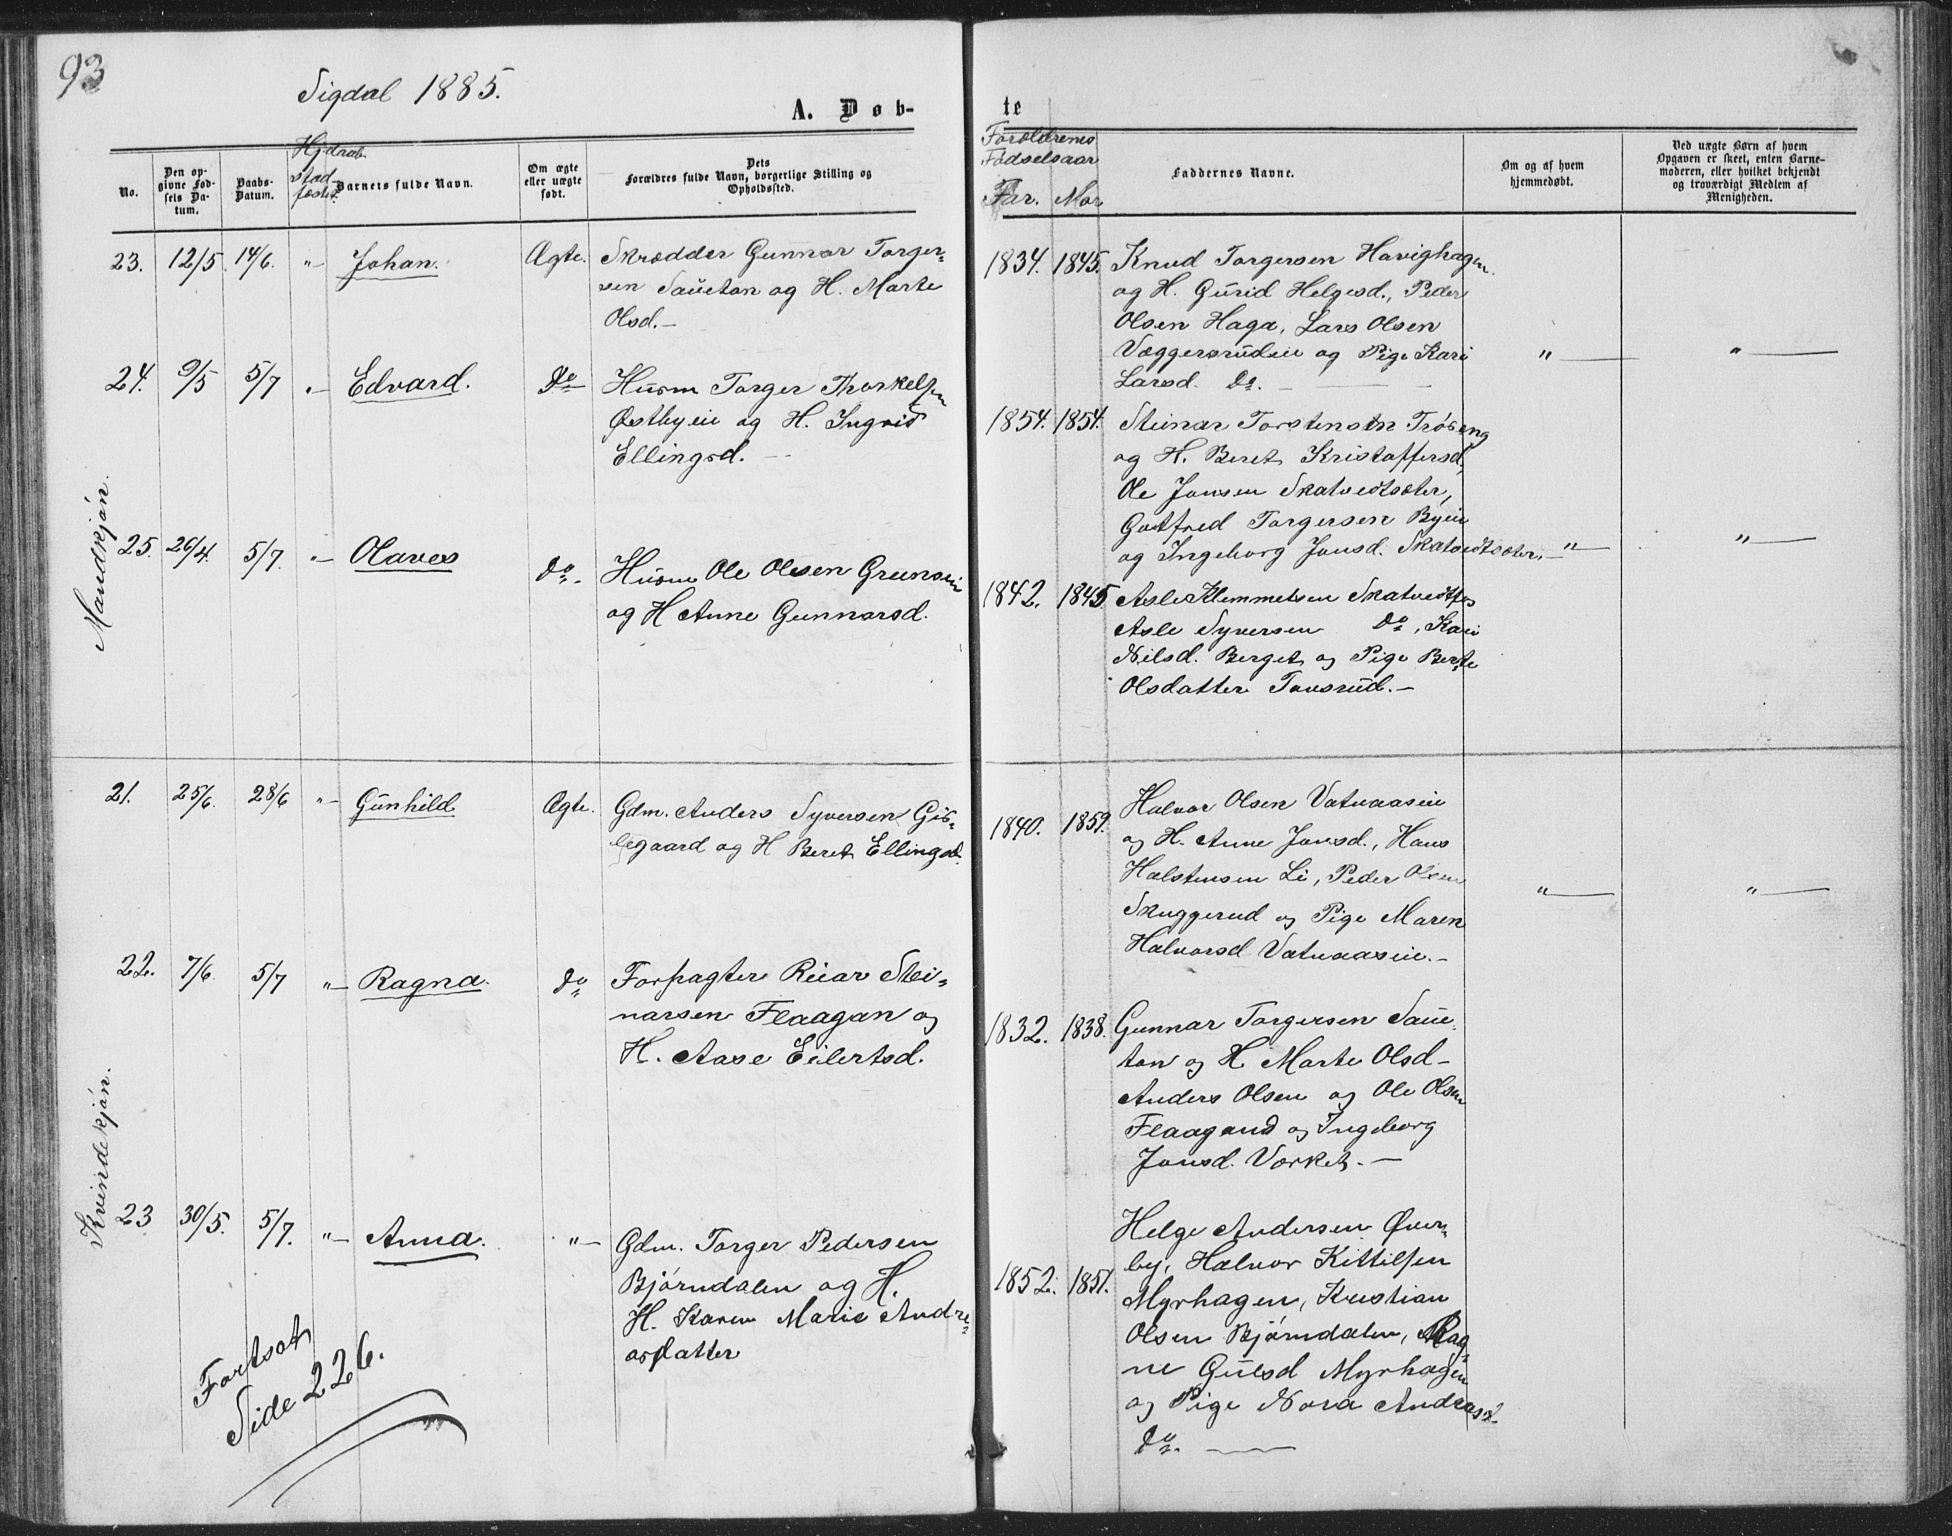 93
Sigdal 1885.
A. Døb-
te
No.
Den op-
givne Fød-
sels Da-
tum.
Daabs-
Datum.
Hjdaab
stad-
fæstet.
Barnets fulde Navn.
Om ægte
eller uægte
født.
Dets
Forældres fulde Navn, borgerlige Stilling og
Opholdssted.
Forældrenes
Fødselsaar
Far. Mor
Faddernes Navne.
Om og af hvem
hjemmedøbt.
Ved uægte Børn af hvem
Opgaven er skeet, enten Barne-
moderen, eller hvilket bekjendt
og troværdigt Medlem af
Menigheden.
Mandkjøn.
23. 12/5. 14/6. "- Johan. Ægte. Skrædder Gunnar Torger-
sen Saueton og H. Marte
Olsd.-
1834. 1845. Knud Torgersen Havighagen
og H. Gurid Helgesd., Peder
Olsen Haga, Lars Olsen
Væggersrudeie og Pige Kari
Larsd. Do. - "— "—
24. 9/5 5/7 "- Edvard. Do Husm Torger Thorkelsen
Østbyeie og H. Ingrid
Ellingsd. -
1854. 1854. Steinar Torstensen Trøseng
og H. Beret Kristoffersd,
Ole Jonsen Skatvedtsæter,
Gotfred Torgersen Byeie
og Ingeborg Jonsd. Skatvedtsæter.- "— "—
25. 26/4. 5/7. "- Olaves do. Husm Ole Olsen Grenseie
og H Anne Gunnarsd.
1842. 1845 Asle Klemmetsen Skatvedtfos
Asle Syversen Do, Kari
Nilsd. Berget og Pige Berte
Olsdatter Tonsrud.-
Kvindekjøn.
21. 25/6. 28/6 "- Gunhild Ægte. Gdm. Anders Syversen Gis-
legaard og H Beret Ellingsd.
1840. 1859. Halvor Olsen Vatnaaseie
og H. Anne Jonsd., Hans
Halstensen Li, Peder Olsen
Skuggerud og Pige Maren
Halvorsd Vatnaaseie.- "— "—
22. 7/6. 5/7 "- Ragna. do Forpagter Reiar Stei-
narsen Flaagan og
H. Aase Eilertsd.
1832. 1838. Gunnar Torgersen Saue-
ton og H Marte Olsd-
Anders Olsen og Ole Olsen
Flaagand og Ingeborg
Jonsd. Værket. -
23 30/5. 5/7. "- Anna. "- Gdm. Torger Pedersen
Bjørndalen og H.
H. Karen Marie Andre-
asdatter
1852. 1857. Helge Andersen Øver-
by, Halvor Kittilsen
Myrhagen, Kristian
Olsen Bjørndalen, Rag-
ne Gulsd Myrhagen
og Pige Nora Andreasd.
do. —
Fortsat
Side 226.